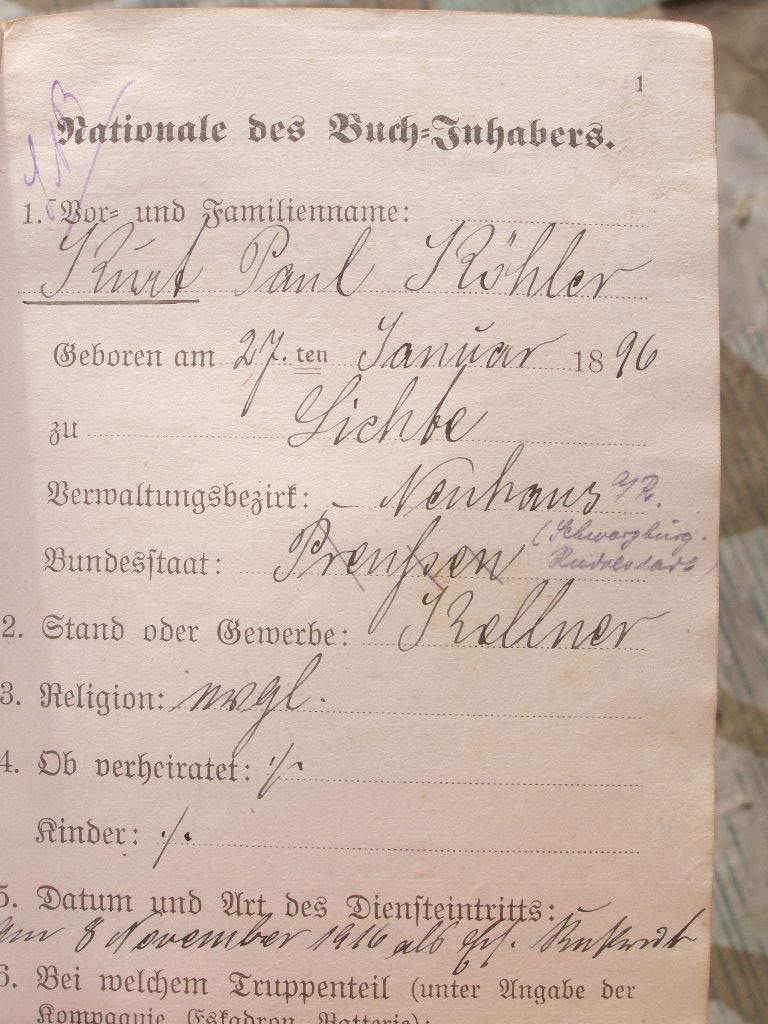 1
Nationale des Buch-Inhabers.
1. Vor- und Familienname:
Kurt Paul Köhler
Geboren am 27.ten Januar 1896
zu Lichte
Verwaltungsbezirk: Neuhaus a/R.
Bundesstaat: Preußen (Schwarzburg-
Rudolstadt)
2. Stand oder Gewerbe: Kellner
3. Religion: evgl.
4. Ob verheiratet: ./.
Kinder: ./.
5. Datum und Art des Diensteintritts:
am 8 November 1916 als Rekrut
6. Bei welchem Truppenteil (unter Angabe der
Kompagnie, Eskadron, Batterie):